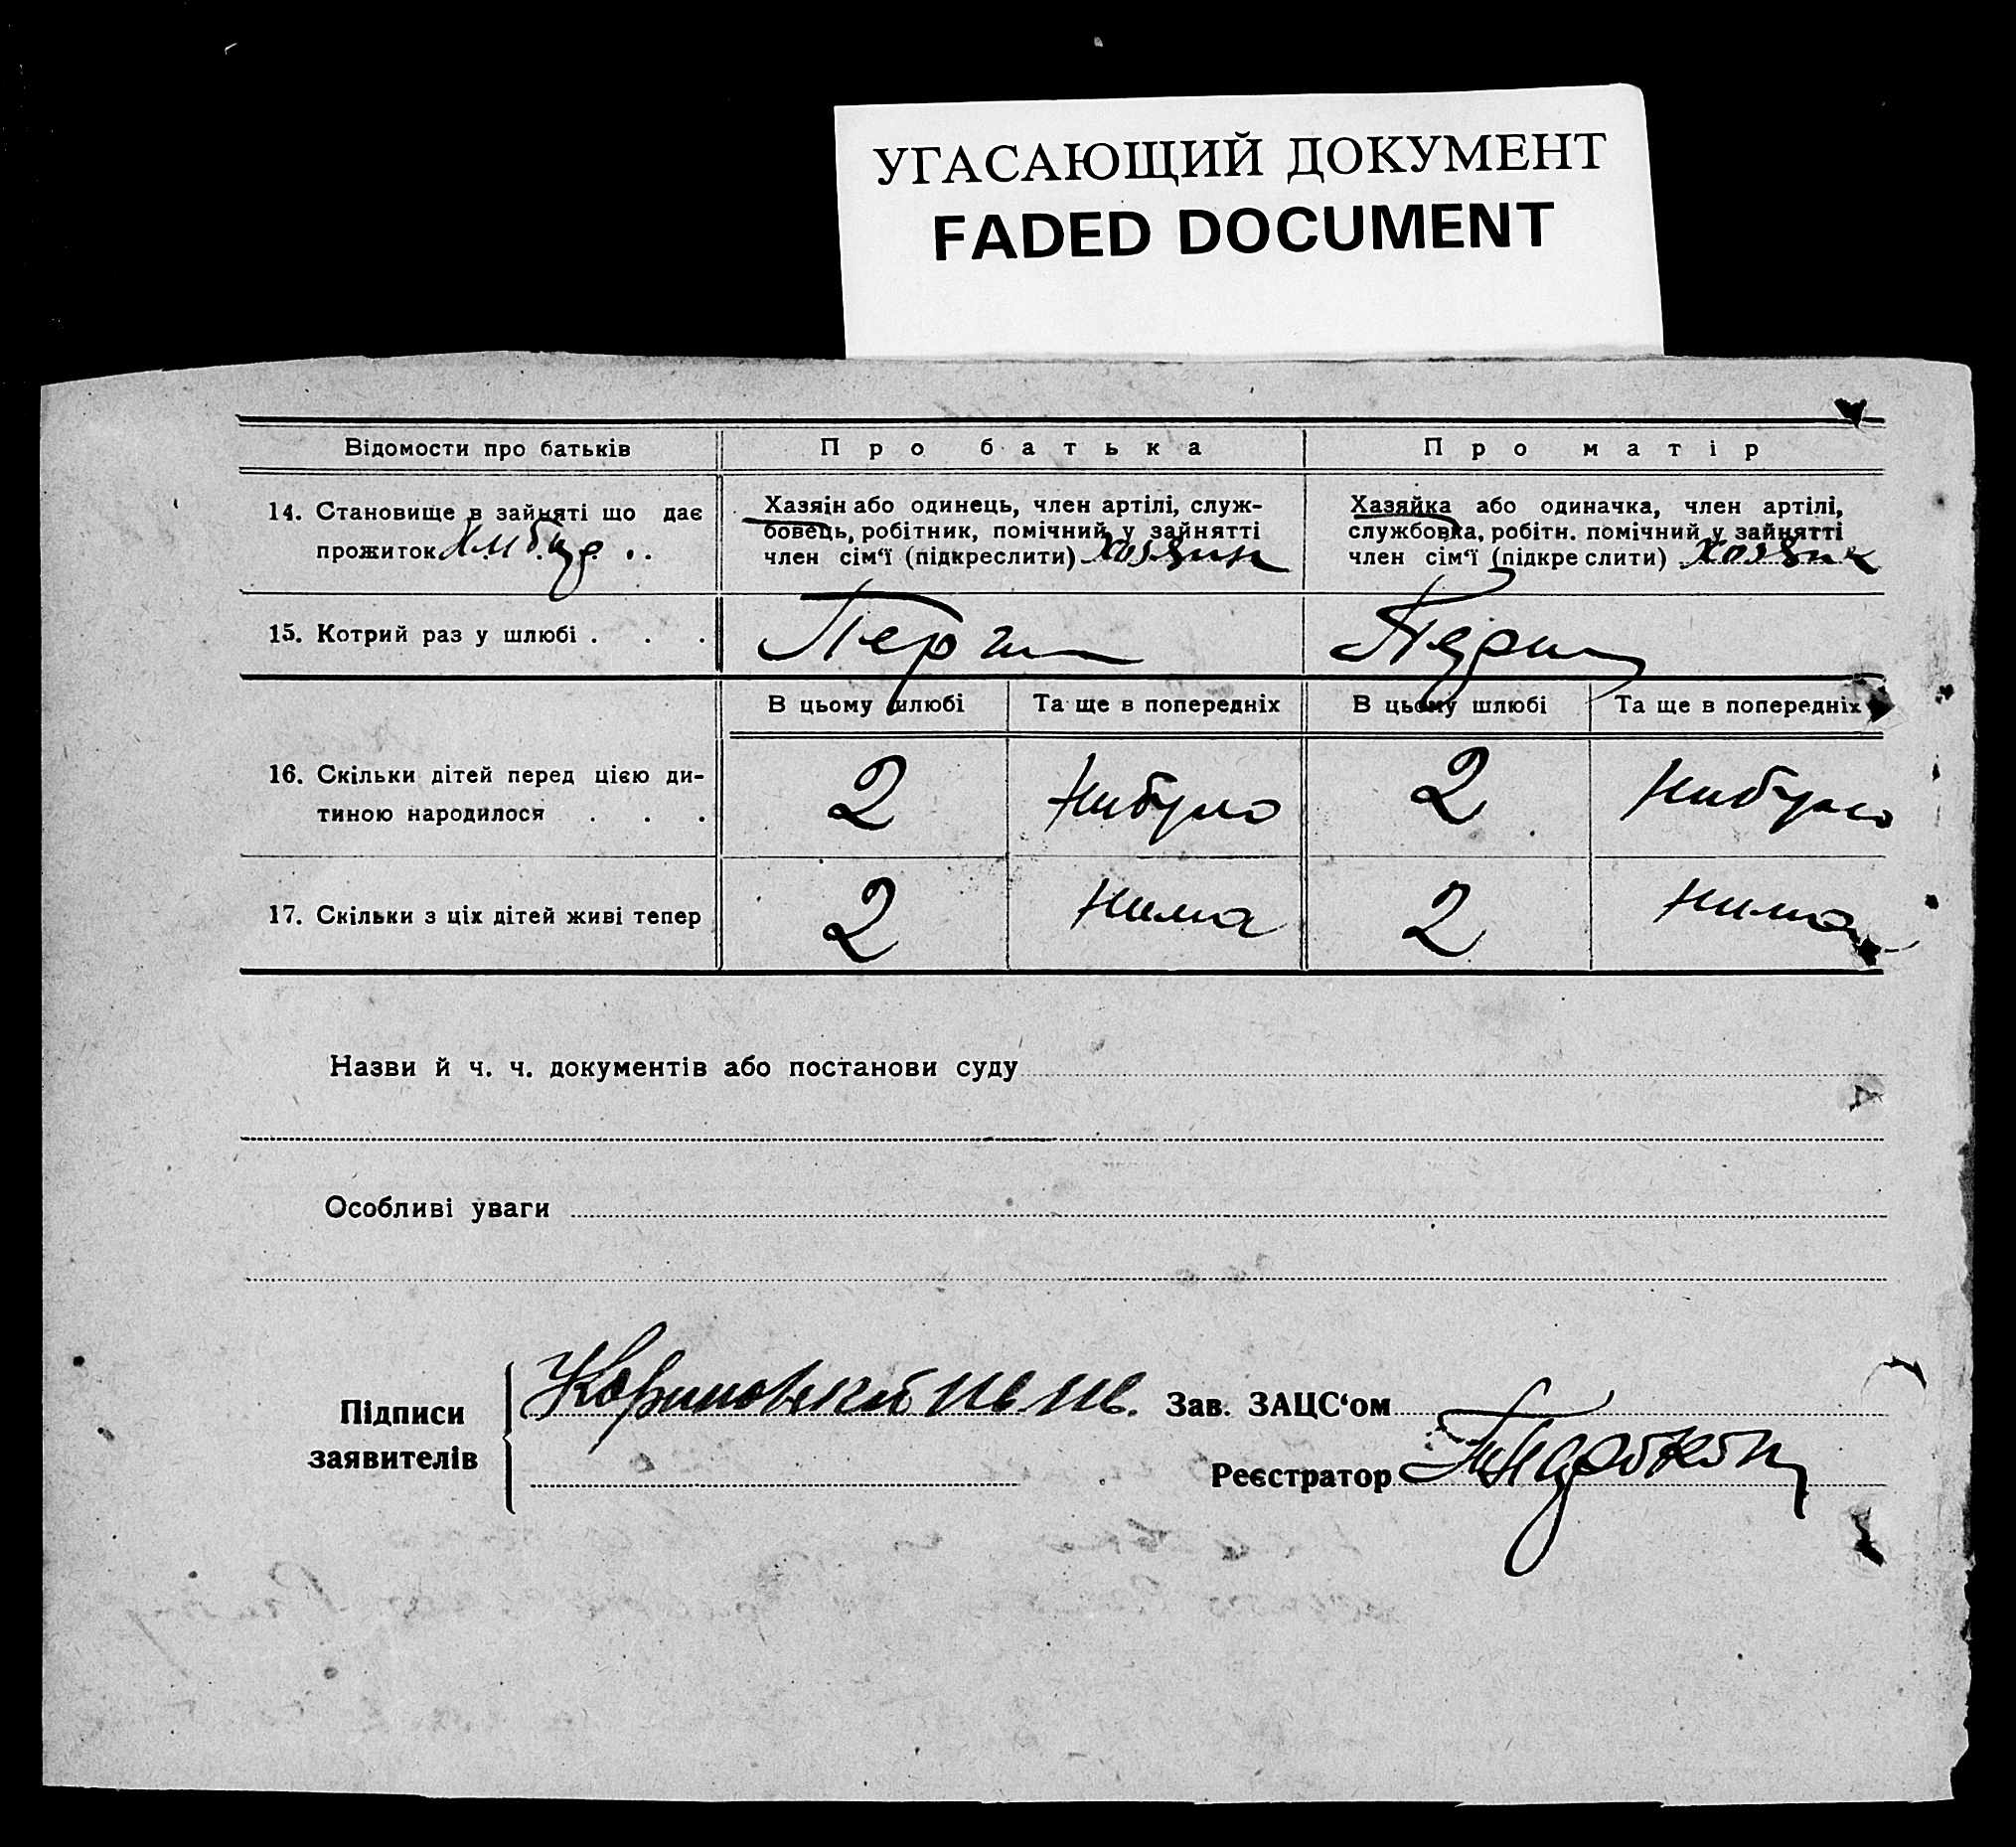 УГАСАЮЩИЙ ДОКУМЕНТ
FADED DOCUMENT
Відомости про батьків Про батька Про матір
14. Становище в зайняті що дає
прожиток
Хазяін або одинець, член артілі, служ-
бовець, робітник, помічний у зайнятті
член сім‘ї (підкреслити)
Хазяйка або одиначка, член артілі,
службовка, робітн. помічний у зайнятті
член сім‘ї (підкре слити)
15. Котрий раз у шлюбі . . .
В цьому шлюбі Та ще в попередніх В цьому шлюбі Та ще в попередніх
16. Скільки дітей перед цією ди-
тиною народилося . . .
2 Нибуло 2 Нибуло
17. Скільки з ціх дітей живі тепер 2 Нима 2 Нима
Назви й ч. ч. документів або постанови суду
Особливі уваги
Підписи
заявителів
Зав. ЗАЦС‘ом
Реєстратор